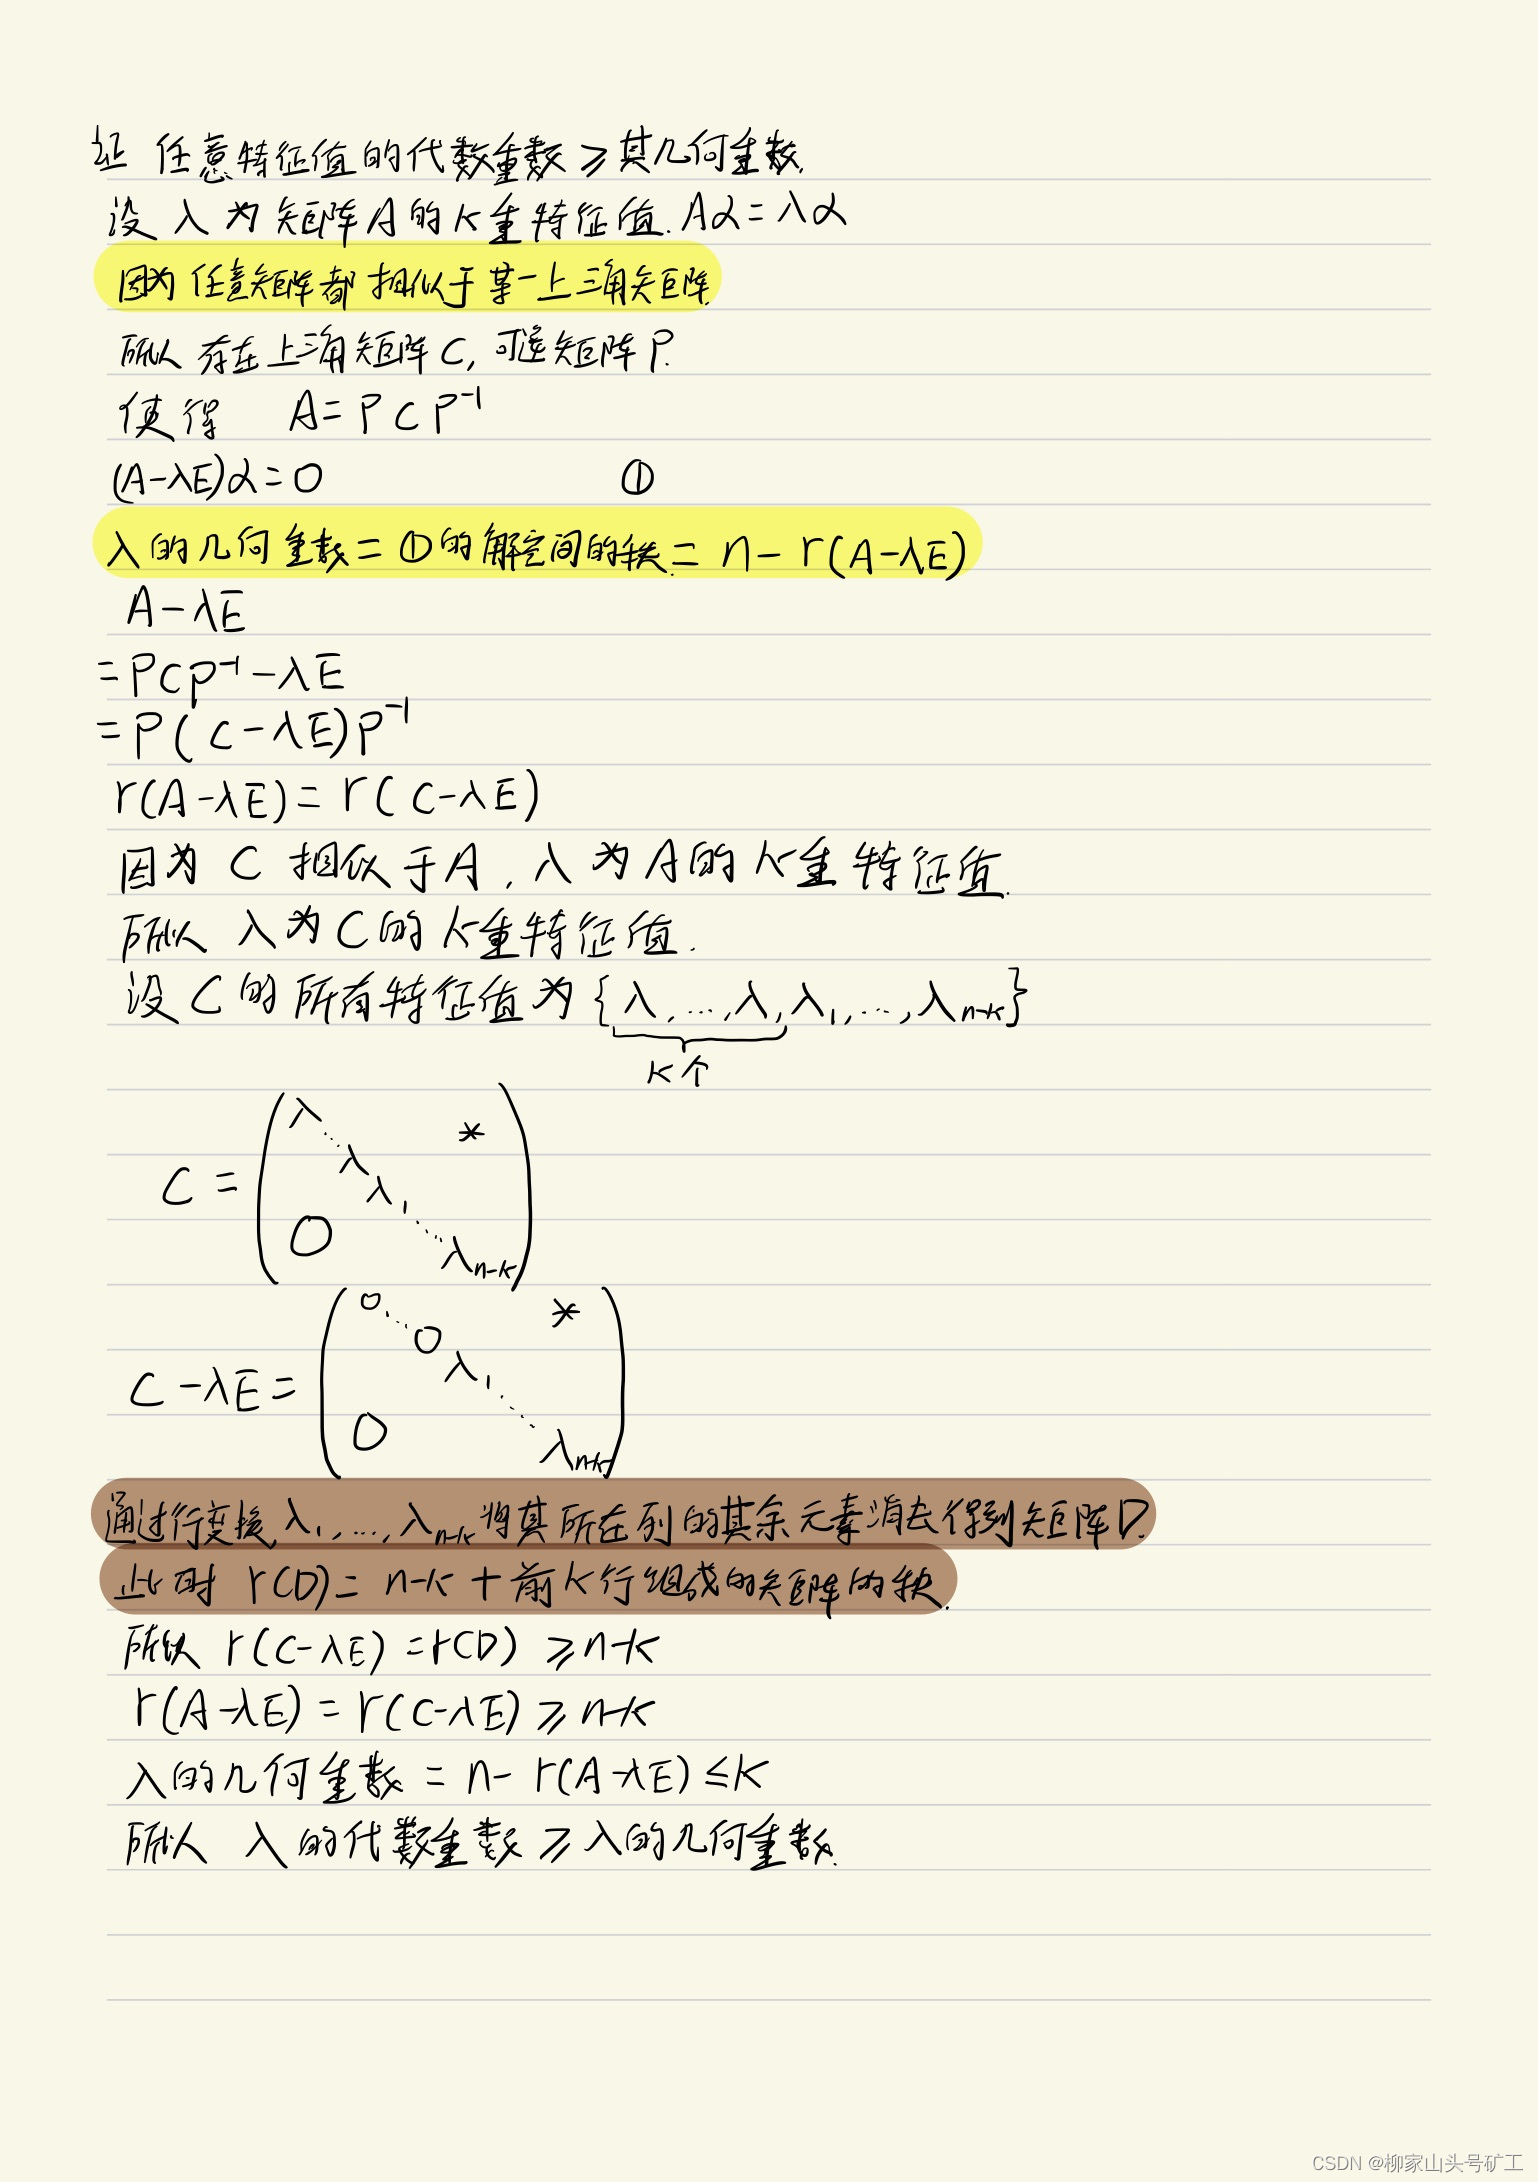 证 任意特征值的代数重数≥其几何重数.
设 λ 为矩阵A的K重特征值. Aα=λα
因为任意矩阵都相似于某一上三角矩阵.
所以 存在上三角矩阵 C, 可逆矩阵 P.
使得 A=PCP⁻¹
(A-λE)α=0 ①
λ的几何重数=①的解空间的秩=n-r(A-λE)
A-λE
=PCP⁻¹-λE
=P(C-λE)P⁻¹
r(A-λE)=r(C-λE)
因为 C 相似于A, λ为A的K重特征值.
所以 λ为C的K重特征值.
设 C的所有特征值为{λ,...,λ,λ₁,...,λₙ₋ₖ}
K个
C = ( λ ... λ λ₁ ... λₙ₋ₖ * 0 )
C-λE = ( 0 ... 0 λ₁ ... λₙ₋ₖ * 0 )
通过行变换,λ₁,...,λₙ₋ₖ将其所在列的其余元素消去得到矩阵D.
此时 r(D)=n-K+前K行组成的矩阵的秩.
所以 r(C-λE)=r(D)≥n-K
r(A-λE)=r(C-λE)≥n-K
λ的几何重数=n-r(A-λE)≤K
所以 λ的代数重数≥λ的几何重数.
CSDN @柳家山头号矿工